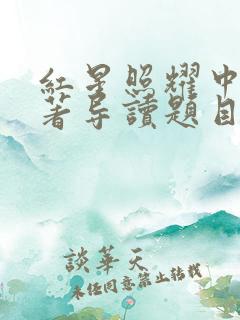 紅星照耀中
著导讀題目
談華天
未经同意禁止转载